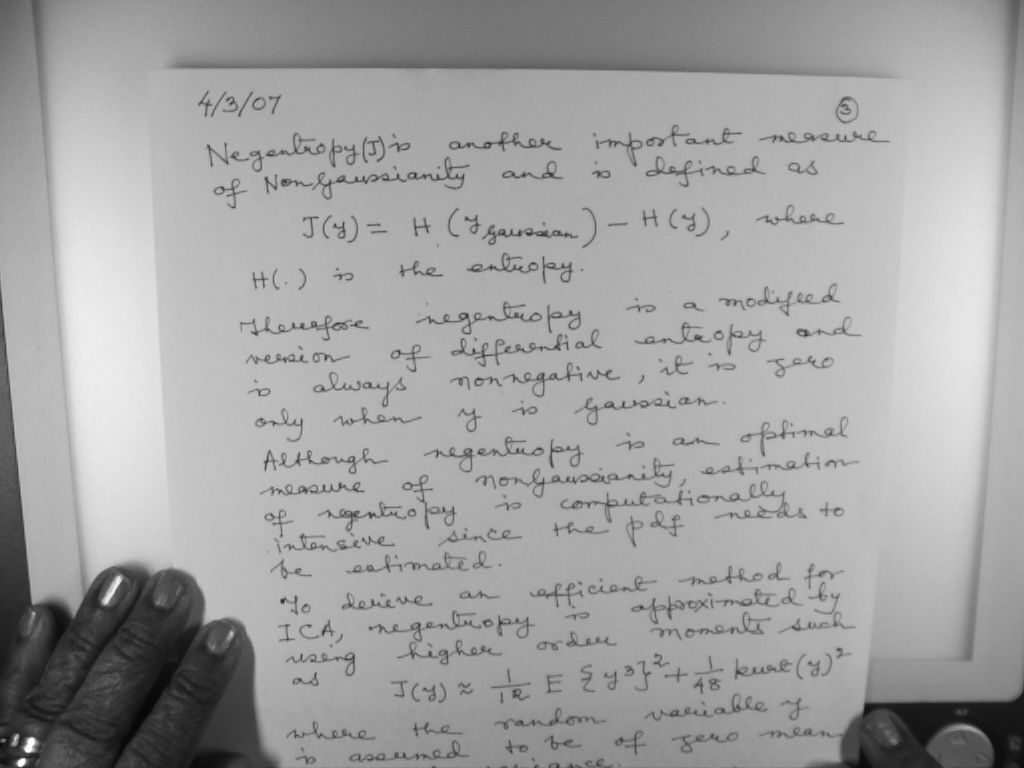 4/3/07
③
Negentropy(J) is another important measure
of NonGaussianity and is defined as
J(y) = H (y gaussian) - H(y), where
H(.) is the entropy.
Therefore negentropy is a modified
version of differential entropy and
is always nonnegative, it is zero
only when y is Gaussian.
Although negentropy is an optimal
measure of nonGaussianity, estimation
of ngentropy is computationally
intensive since the pdf needs to
be estimated.
To derive an efficient method for
ICA, negentropy is approximated by
using higher order moments such
as J(y) ≈ 1/12 E {y3}² + 1/48 kurt(y)²
where the random variable y
is assumed to be of zero mean